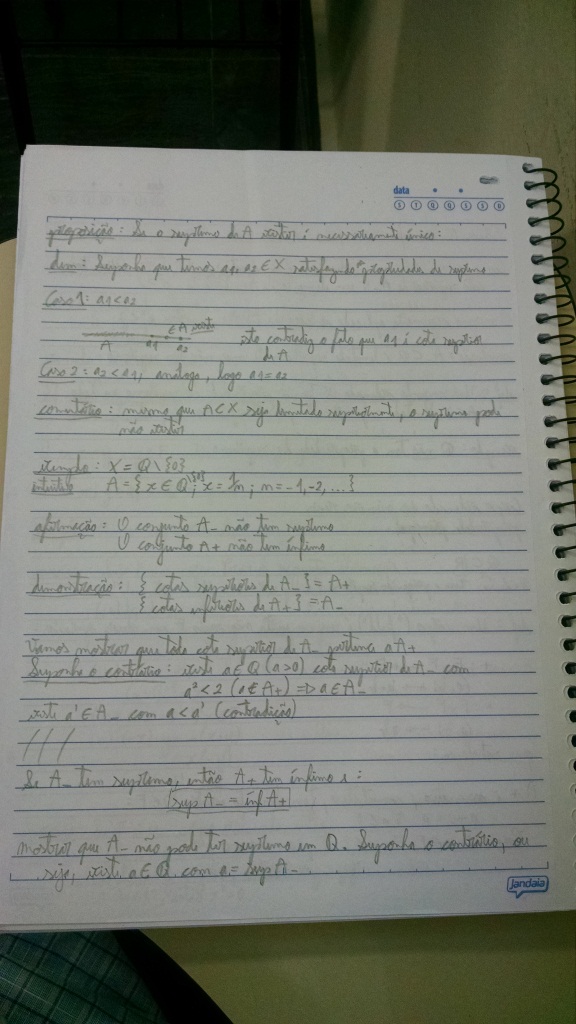 data
S T Q Q S S D
proposição: Se o supremo de A existir é necessariamente único:
dem: Suponha que temos a1, a2 ∈ X satisfazendo a propriedade de supremo
Caso 1: a1 < a2
∈ A existe
A a1 a2 isto contradiz o fato que a1 é cota superior
de A
Caso 2: a2 < a1, análogo, logo a1 = a2
comentário: mesmo que A ⊂ X seja limitado superiormente, o supremo pode
não existir
exemplo: X = Q \ {0}
intuitivo A = { x ∈ Q\{0}; x = 1/n; n = -1, -2, ... }
afirmação: O conjunto A- não tem supremo
O conjunto A+ não tem ínfimo
demonstração: { cotas superiores de A- } = A+
{ cotas inferiores de A+ } = A-
Vamos mostrar que toda cota superior de A- pertence a A+
Suponha o contrário: existe a ∈ Q (a>0) cota superior de A- com
a² < 2 (a ∉ A+) => a ∈ A-
existe a' ∈ A- com a < a' (contradição)
///
Se A- tem supremo, então A+ tem ínfimo e:
sup A- = inf A+
mostrar que A- não pode ter supremo em Q. Suponha o contrário, ou
seja, existe a ∈ Q com a = sup A-
Jandaia